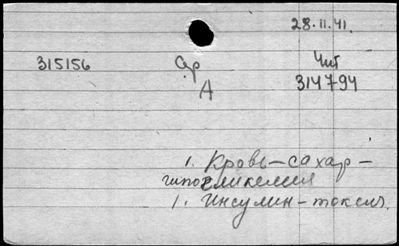 28.11.41.
315156 Ср Чит
А 314794
1. Кровь-сахар-
гипогликемия
1. Инсулин-токсич.